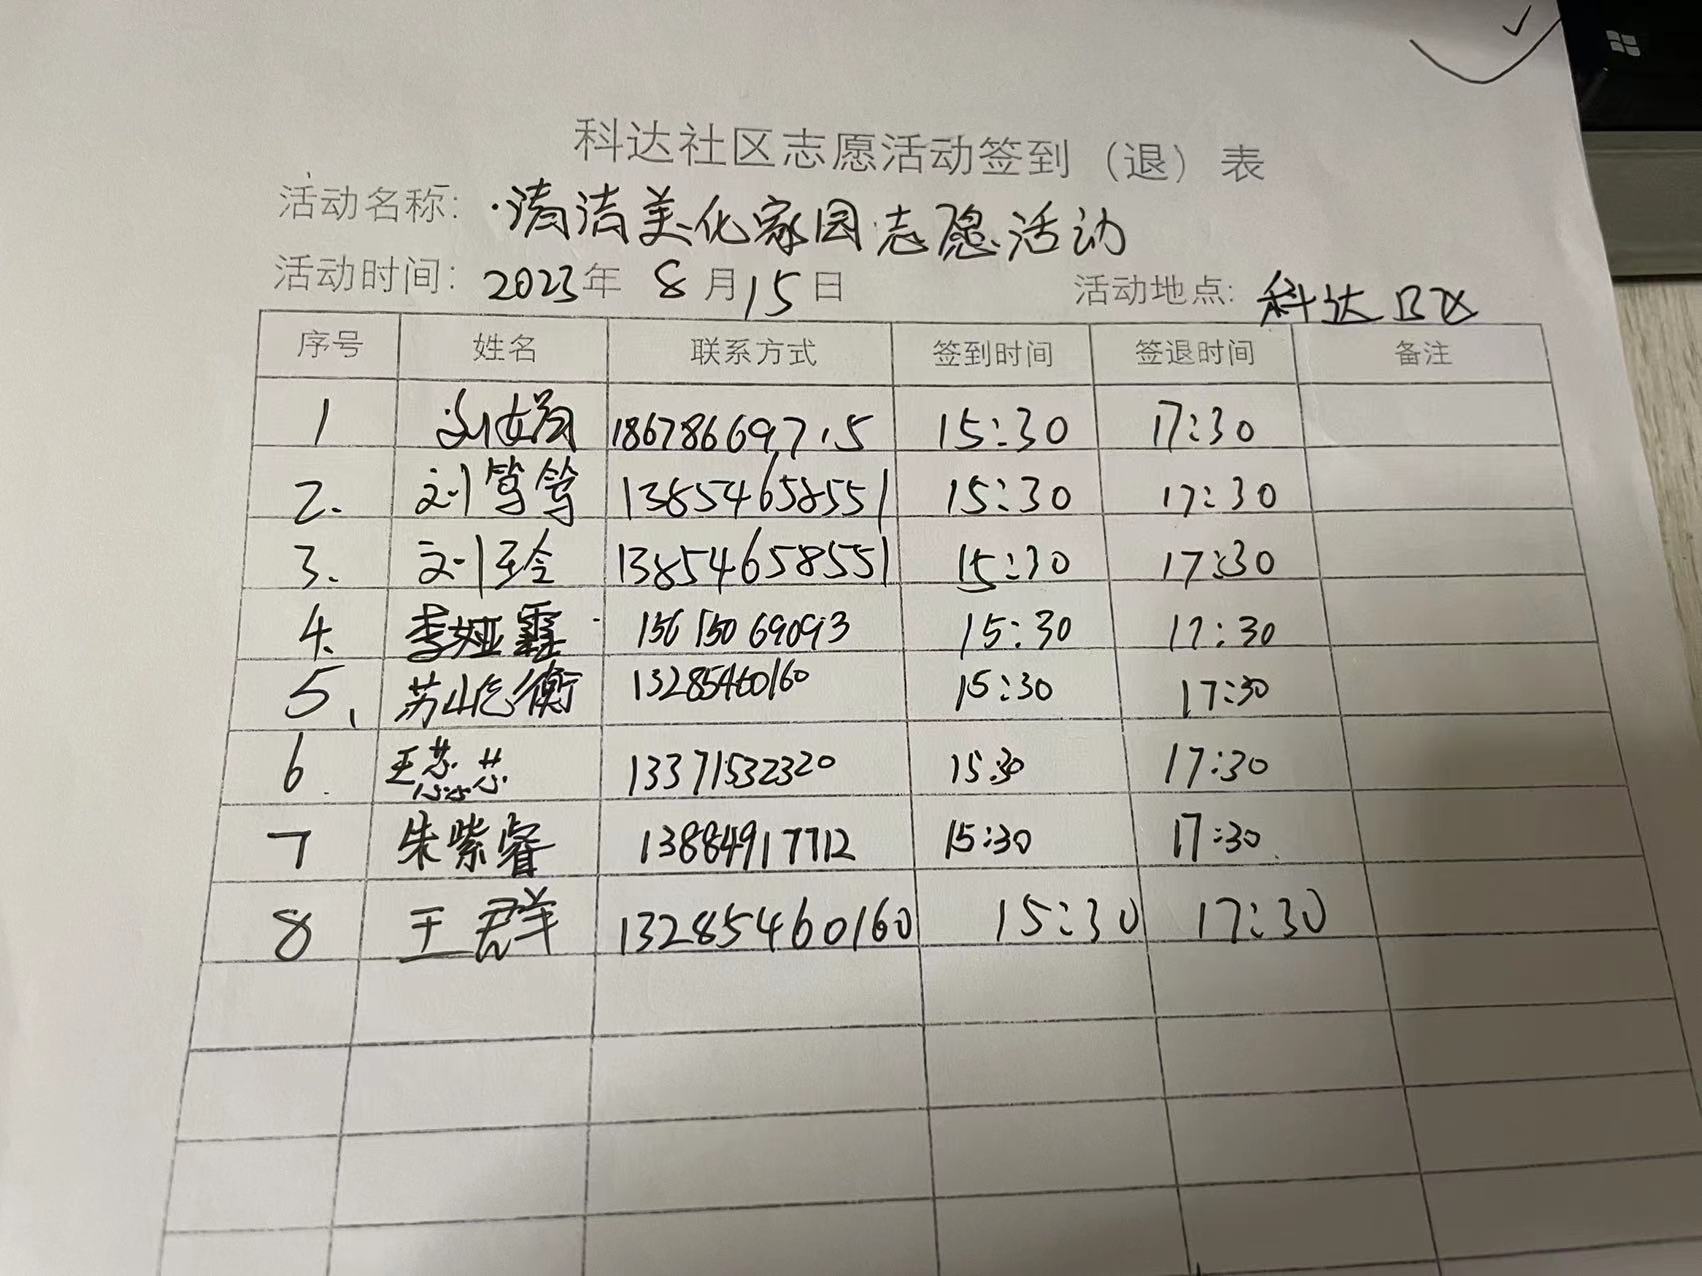 科达社区志愿活动签到（退）表
活动名称: 清洁美化家园志愿活动
活动时间: 2023年 8月15日 活动地点: 科达B区
序号 姓名 联系方式 签到时间 签退时间 备注
1 15:30 17:30
2. 13854658551 15:30 17:30
3. 13854658551 15:30 17:30
4. 15615069093 15:30 17:30
5、 13285460160 15:30 17:30
6 王蕊芯 13371532320 15:30 17:30
7 朱紫睿 13884917712 15:30 17:30
8 王群 13285460160 15:30 17:30